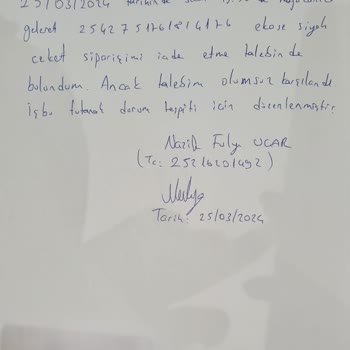 25/03/2024 tarihinde saat
gelerek 25427517618164176 ekose siyah
ceket siparişimi iade etme talebinde
bulundum. Ancak talebim olumsuz karşılandı
İşbu tutanak durum tespiti için düzenlenmiştir.
Nazife Fulya UCAR
(Tc: 25216201492)
Tarih: 25/03/2024